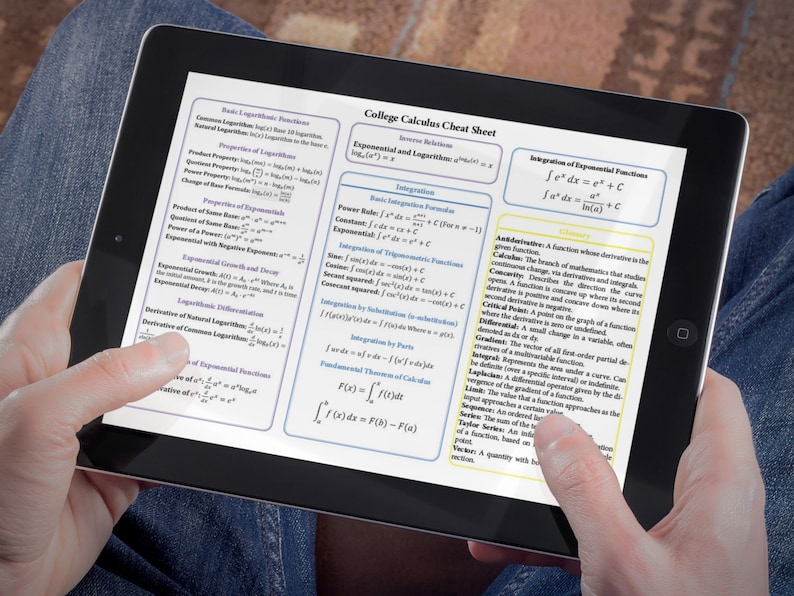 College Calculus Cheat Sheet
Basic Logarithmic Functions
Common Logarithm: log(x) Base 10 logarithm.
Natural Logarithm: ln(x) Logarithm to the base e.
Properties of Logarithms
Product Property: logₐ(mn) = logₐ(m) + logₐ(n)
Quotient Property: logₐ(m/n) = logₐ(m) − logₐ(n)
Power Property: logₐ(mⁿ) = n · logₐ(m)
Change of Base Formula: logᵦ(a) = ln(a)/ln(b)
Properties of Exponentials
Product of Same Base: aᵐ · aⁿ = aᵐ⁺ⁿ
Quotient of Same Base: aᵐ/aⁿ = aᵐ⁻ⁿ
Power of a Power: (aᵐ)ⁿ = aᵐⁿ
Exponential with Negative Exponent: a⁻ⁿ = 1/aⁿ
Exponential Growth and Decay
Exponential Growth: A(t) = A₀ · eᵏᵗ Where A₀ is
the initial amount, k is the growth rate, and t is time
Exponential Decay: A(t) = A₀ · e⁻ᵏᵗ
Logarithmic Differentiation
Derivative of Natural Logarithm: d/dx ln(x) = 1/x
Derivative of Common Logarithm: d/dx logₐ(x) =
of Exponential Functions
ve of aˣ: d/dx aˣ = aˣ logₑ a
ve of eˣ: d/dx eˣ = eˣ
Inverse Relations
Exponential and Logarithm: a^(logₐ(x)) = x
logₐ(aˣ) = x
Integration
Basic Integration Formulas
Power Rule: ∫ xⁿ dx = xⁿ⁺¹/(n+1) + C (For n ≠ −1)
Constant: ∫ c dx = cx + C
Exponential: ∫ eˣ dx = eˣ + C
Integration of Trigonometric Functions
Sine: ∫ sin(x) dx = −cos(x) + C
Cosine: ∫ cos(x) dx = sin(x) + C
Secant squared: ∫ sec²(x) dx = tan(x) + C
Cosecant squared: ∫ csc²(x) dx = −cot(x) + C
Integration by Substitution (u-substitution)
∫ f(g(x))g′(x) dx = ∫ f(u) du Where u = g(x).
Integration by Parts
∫ uv dx = u∫ v dx − ∫(u′∫ v dx)dx
Fundamental Theorem of Calculus
F(x) = ∫ₐˣ f(t)dt
∫ₐᵇ f(x) dx = F(b) − F(a)
Integration of Exponential Functions
∫ eˣ dx = eˣ + C
∫ aˣ dx = aˣ/ln(a) + C
Glossary
Antiderivative: A function whose derivative is the
given function.
Calculus: The branch of mathematics that studies
continuous change, via derivatives and integrals.
Concavity: Describes the direction the curve
opens. A function is concave up where its second
derivative is positive and concave down where its
second derivative is negative.
Critical Point: A point on the graph of a function
where the derivative is zero or undefined.
Differential: A small change in a variable, often
denoted as dx or dy.
Gradient: The vector of all first-order partial de-
rivatives of a multivariable function.
Integral: Represents the area under a curve. Can
be definite (over a specific interval) or indefinite.
Laplacian: A differential operator given by the di-
vergence of the gradient of a function.
Limit: The value that a function approaches as the
input approaches a certain value.
Sequence: An ordered lis
Series: The sum of the
Taylor Series: An infi
of a function, based on
point.
Vector: A quantity with bo
rection.